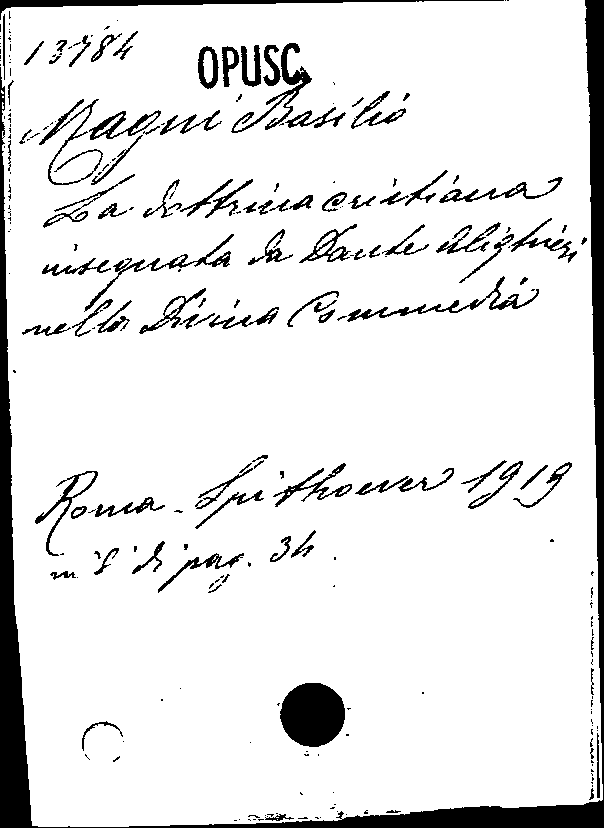 13784
OPUSC.
Magni Basilio
La dottrina cristiana
insegnata da Dante Alighieri
nella Divina Commedia
Roma - Spithoever 1919
in 8° di pag. 34.